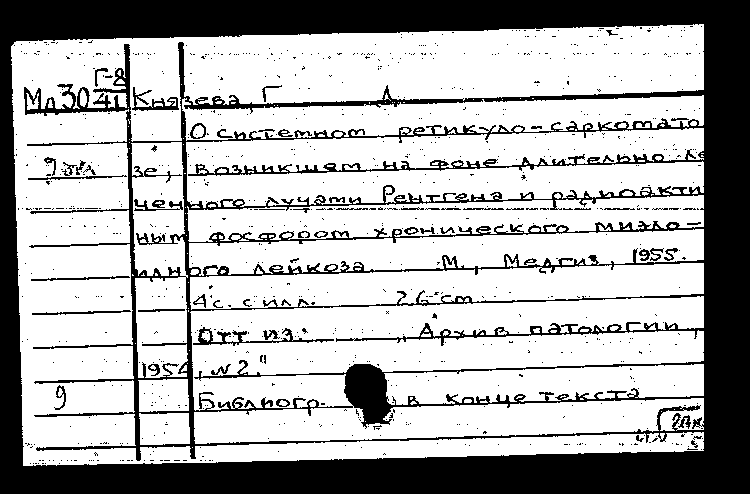 Г-8
Мд30 41 Князева, Г Д
О системном ретикуло-саркомато
9 экз зе, возникшем на фоне длительно ле
ченного лучами Рентгена и радиоакти
ным фосфором хронического миэло-
идного лейкоза. М., Медгиз, 1955.
4 с. с илл. 26 см
Отт из: "Архив патологии,
1954, №2."
9 Библиогр. в конце текста